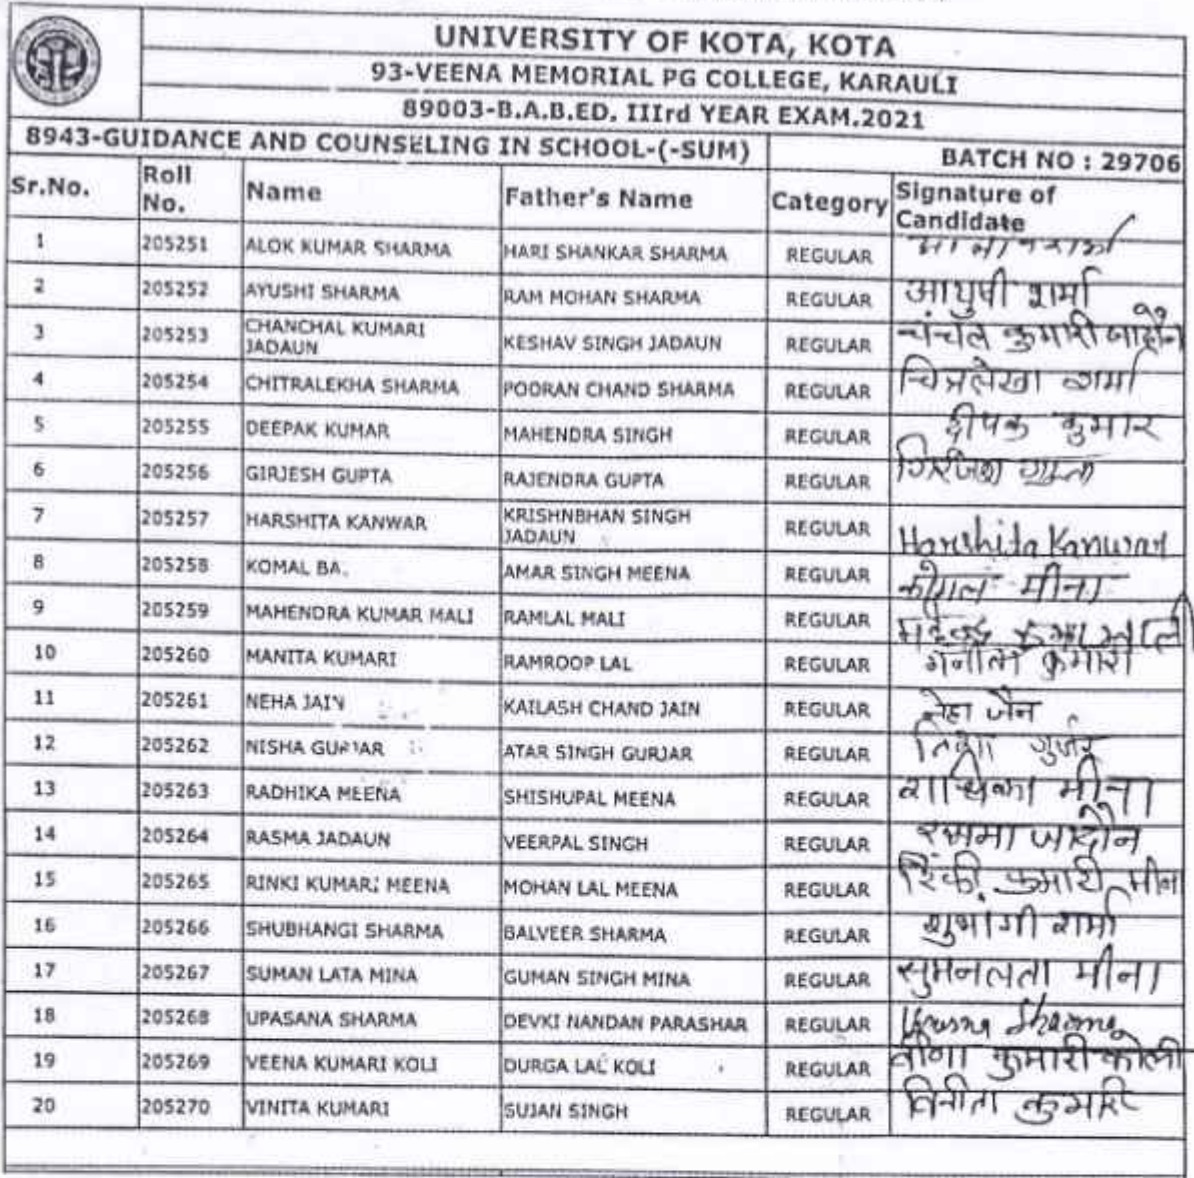 UNIVERSITY OF KOTA, KOTA
93-VEENA MEMORIAL PG COLLEGE, KARAULI
89003-B.A.B.ED. IIIrd YEAR EXAM.2021
8943-GUIDANCE AND COUNSELING IN SCHOOL-(-SUM) BATCH NO : 29706
Sr.No. Roll No. Name Father's Name Category Signature of Candidate
1 205251 ALOK KUMAR SHARMA HARI SHANKAR SHARMA REGULAR
2 205252 AYUSHI SHARMA RAM MOHAN SHARMA REGULAR आयुषी शर्मा
3 205253 CHANCHAL KUMARI JADAUN KESHAV SINGH JADAUN REGULAR चंचल कुमारी जादौन
4 205254 CHITRALEKHA SHARMA POORAN CHAND SHARMA REGULAR चित्रलेखा शर्मा
5 205255 DEEPAK KUMAR MAHENDRA SINGH REGULAR दीपक कुमार
6 205256 GIRJESH GUPTA RAJENDRA GUPTA REGULAR
7 205257 HARSHITA KANWAR KRISHNBHAN SINGH JADAUN REGULAR Harshita Kanwar
8 205258 KOMAL BA. AMAR SINGH MEENA REGULAR कोमल मीना
9 205259 MAHENDRA KUMAR MALI RAMLAL MALI REGULAR महेन्द्र कुमार माली
10 205260 MANITA KUMARI RAMROOP LAL REGULAR मनीता कुमारी
11 205261 NEHA JAIN KAILASH CHAND JAIN REGULAR नेहा जैन
12 205262 NISHA GURJAR ATAR SINGH GURJAR REGULAR निशा गुर्जर
13 205263 RADHIKA MEENA SHISHUPAL MEENA REGULAR राधिका मीना
14 205264 RASMA JADAUN VEERPAL SINGH REGULAR रसमा जादौन
15 205265 RINKI KUMARI MEENA MOHAN LAL MEENA REGULAR रिंकी कुमारी मीना
16 205266 SHUBHANGI SHARMA BALVEER SHARMA REGULAR शुभांगी शर्मा
17 205267 SUMAN LATA MINA GUMAN SINGH MINA REGULAR सुमनलता मीना
18 205268 UPASANA SHARMA DEVKI NANDAN PARASHAR REGULAR Sharma
19 205269 VEENA KUMARI KOLI DURGA LAL KOLI REGULAR वीणा कुमारी कोली
20 205270 VINITA KUMARI SUJAN SINGH REGULAR विनीता कुमारी